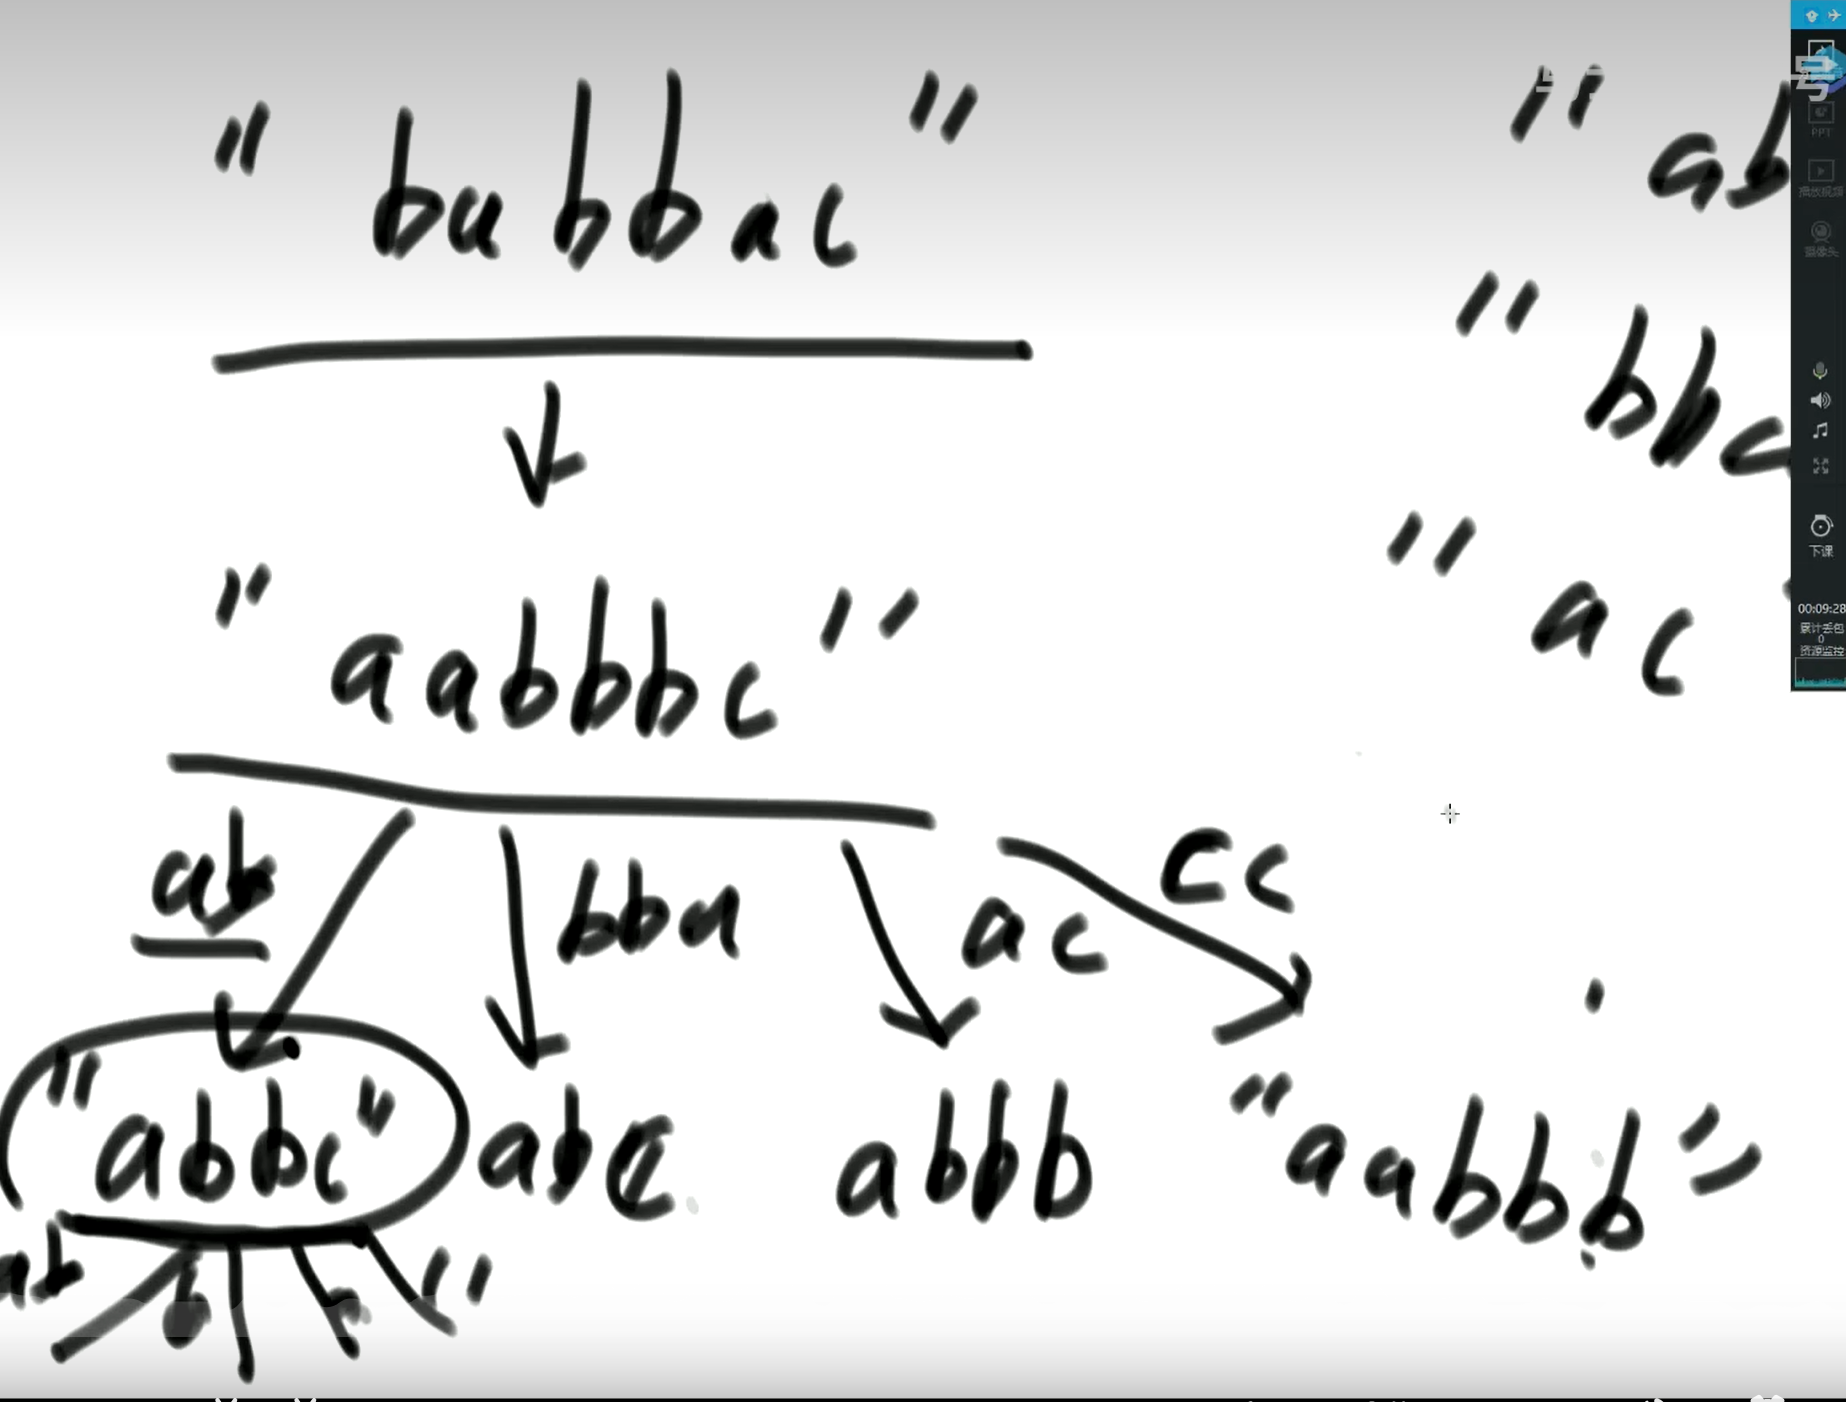 " babbac "
" ab
" bbc
" ac
" aabbbc "
ab
bba
ac
cc
" abbc "
abc
abbb
" aabbb "
ab
b
号
PPT
播放视频
摄像头
下课
00:09:28
累计丢包
0
资源监控